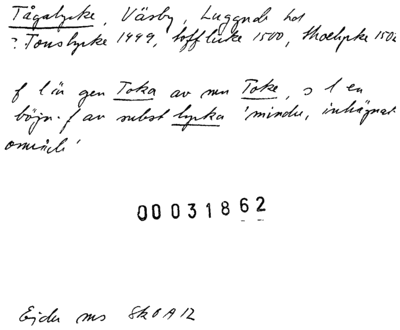 Tågalycke, Väsby, Luggude hd
? Touslycke 1499, toffliicke 1500, thoelycke 150
f l är gen Toka av mn Toke, s l en
böjn. f av subst lycka 'mindre, inhägnat
område'
00031862
Ejder ms SkOA12